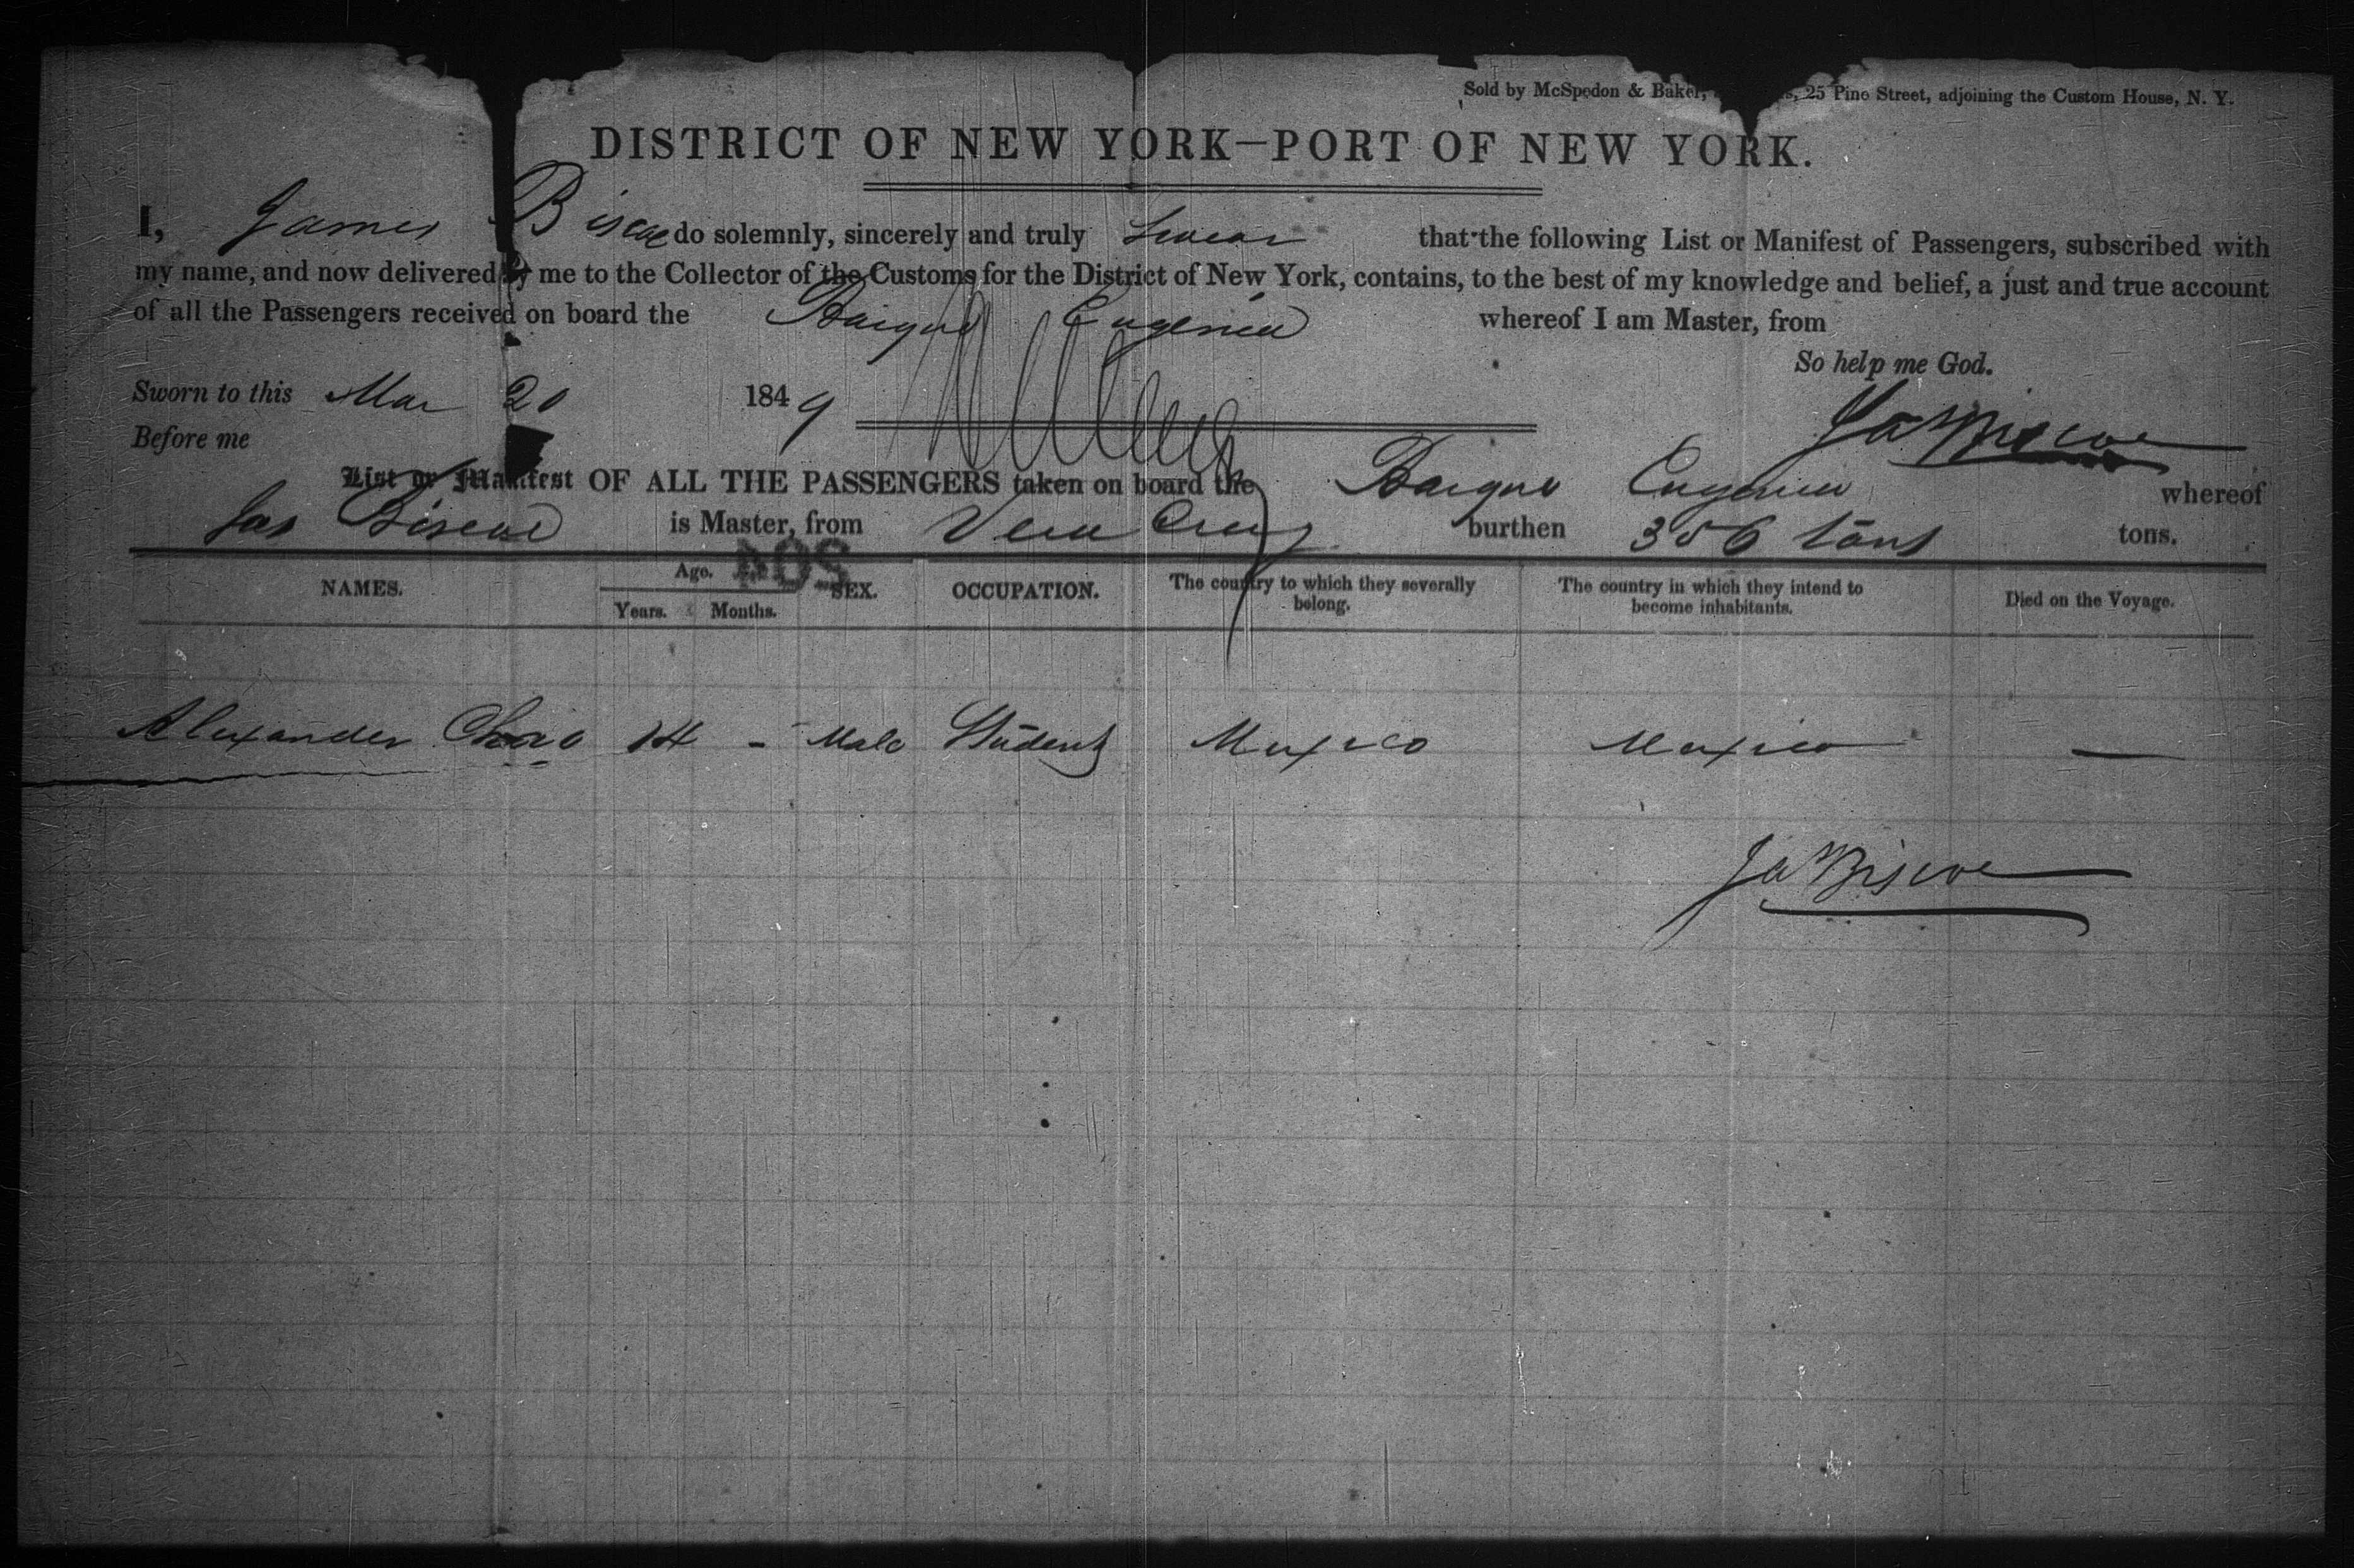 Sold by McSpedon & Baker, 25 Pine Street, adjoining the Custom House, N. Y.
DISTRICT OF NEW YORK—PORT OF NEW YORK.
I, James Biscoe do solemnly, sincerely and truly swear that the following List or Manifest of Passengers, subscribed with
my name, and now delivered by me to the Collector of the Customs for the District of New York, contains, to the best of my knowledge and belief, a just and true account
of all the Passengers received on board the Barque Eugenia whereof I am Master, from
So help me God.
Sworn to this Mar 20 1849
Jas Biscoe
Before me
List or Manifest OF ALL THE PASSENGERS taken on board the Barque Eugenia whereof
Jas Biscoe is Master, from Vera Cruz burthen 356 tons tons.
NAMES. Age. Years. Months. SEX. OCCUPATION. The country to which they severally belong. The country in which they intend to become inhabitants. Died on the Voyage.
Alexander 14 - Male Student Mexico Mexico —
Jas Biscoe